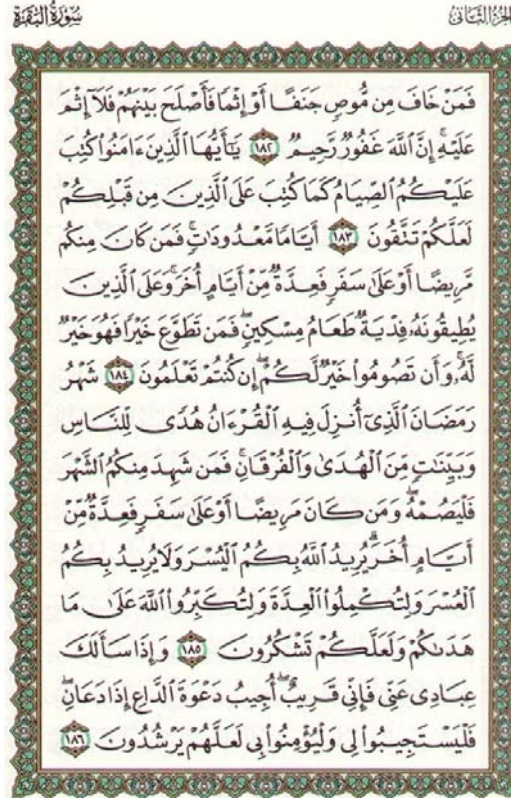 سُورَةُ البَقَرَةِ
الجُزْءُ الثَّانِي
فَمَنْ خَافَ مِن مُّوصٍ جَنَفًا أَوْ إِثْمًا فَأَصْلَحَ بَيْنَهُمْ فَلَآ إِثْمَ
عَلَيْهِ إِنَّ ٱللَّهَ غَفُورٌ رَّحِيمٌ ١٨٢ يَٰٓأَيُّهَا ٱلَّذِينَ ءَامَنُوا۟ كُتِبَ
عَلَيْكُمُ ٱلصِّيَامُ كَمَا كُتِبَ عَلَى ٱلَّذِينَ مِن قَبْلِكُمْ
لَعَلَّكُمْ تَتَّقُونَ ١٨٣ أَيَّامًا مَّعْدُودَٰتٍ ۚ فَمَن كَانَ مِنكُم
مَّرِيضًا أَوْ عَلَىٰ سَفَرٍ فَعِدَّةٌ مِّنْ أَيَّامٍ أُخَرَ ۚ وَعَلَى ٱلَّذِينَ
يُطِيقُونَهُۥ فِدْيَةٌ طَعَامُ مِسْكِينٍ ۖ فَمَن تَطَوَّعَ خَيْرًا فَهُوَ خَيْرٌ
لَّهُۥ ۚ وَأَن تَصُومُوا۟ خَيْرٌ لَّكُمْ ۖ إِن كُنتُمْ تَعْلَمُونَ ١٨٤ شَهْرُ
رَمَضَانَ ٱلَّذِىٓ أُنزِلَ فِيهِ ٱلْقُرْءَانُ هُدًى لِّلنَّاسِ
وَبَيِّنَٰتٍ مِّنَ ٱلْهُدَىٰ وَٱلْفُرْقَانِ ۚ فَمَن شَهِدَ مِنكُمُ ٱلشَّهْرَ
فَلْيَصُمْهُ ۖ وَمَن كَانَ مَرِيضًا أَوْ عَلَىٰ سَفَرٍ فَعِدَّةٌ مِّنْ
أَيَّامٍ أُخَرَ ۗ يُرِيدُ ٱللَّهُ بِكُمُ ٱلْيُسْرَ وَلَا يُرِيدُ بِكُمُ
ٱلْعُسْرَ وَلِتُكْمِلُوا۟ ٱلْعِدَّةَ وَلِتُكَبِّرُوا۟ ٱللَّهَ عَلَىٰ مَا
هَدَىٰكُمْ وَلَعَلَّكُمْ تَشْكُرُونَ ١٨٥ وَإِذَا سَأَلَكَ
عِبَادِى عَنِّى فَإِنِّى قَرِيبٌ ۖ أُجِيبُ دَعْوَةَ ٱلدَّاعِ إِذَا دَعَانِ ۖ
فَلْيَسْتَجِيبُوا۟ لِى وَلْيُؤْمِنُوا۟ بِى لَعَلَّهُمْ يَرْشُدُونَ ١٨٦